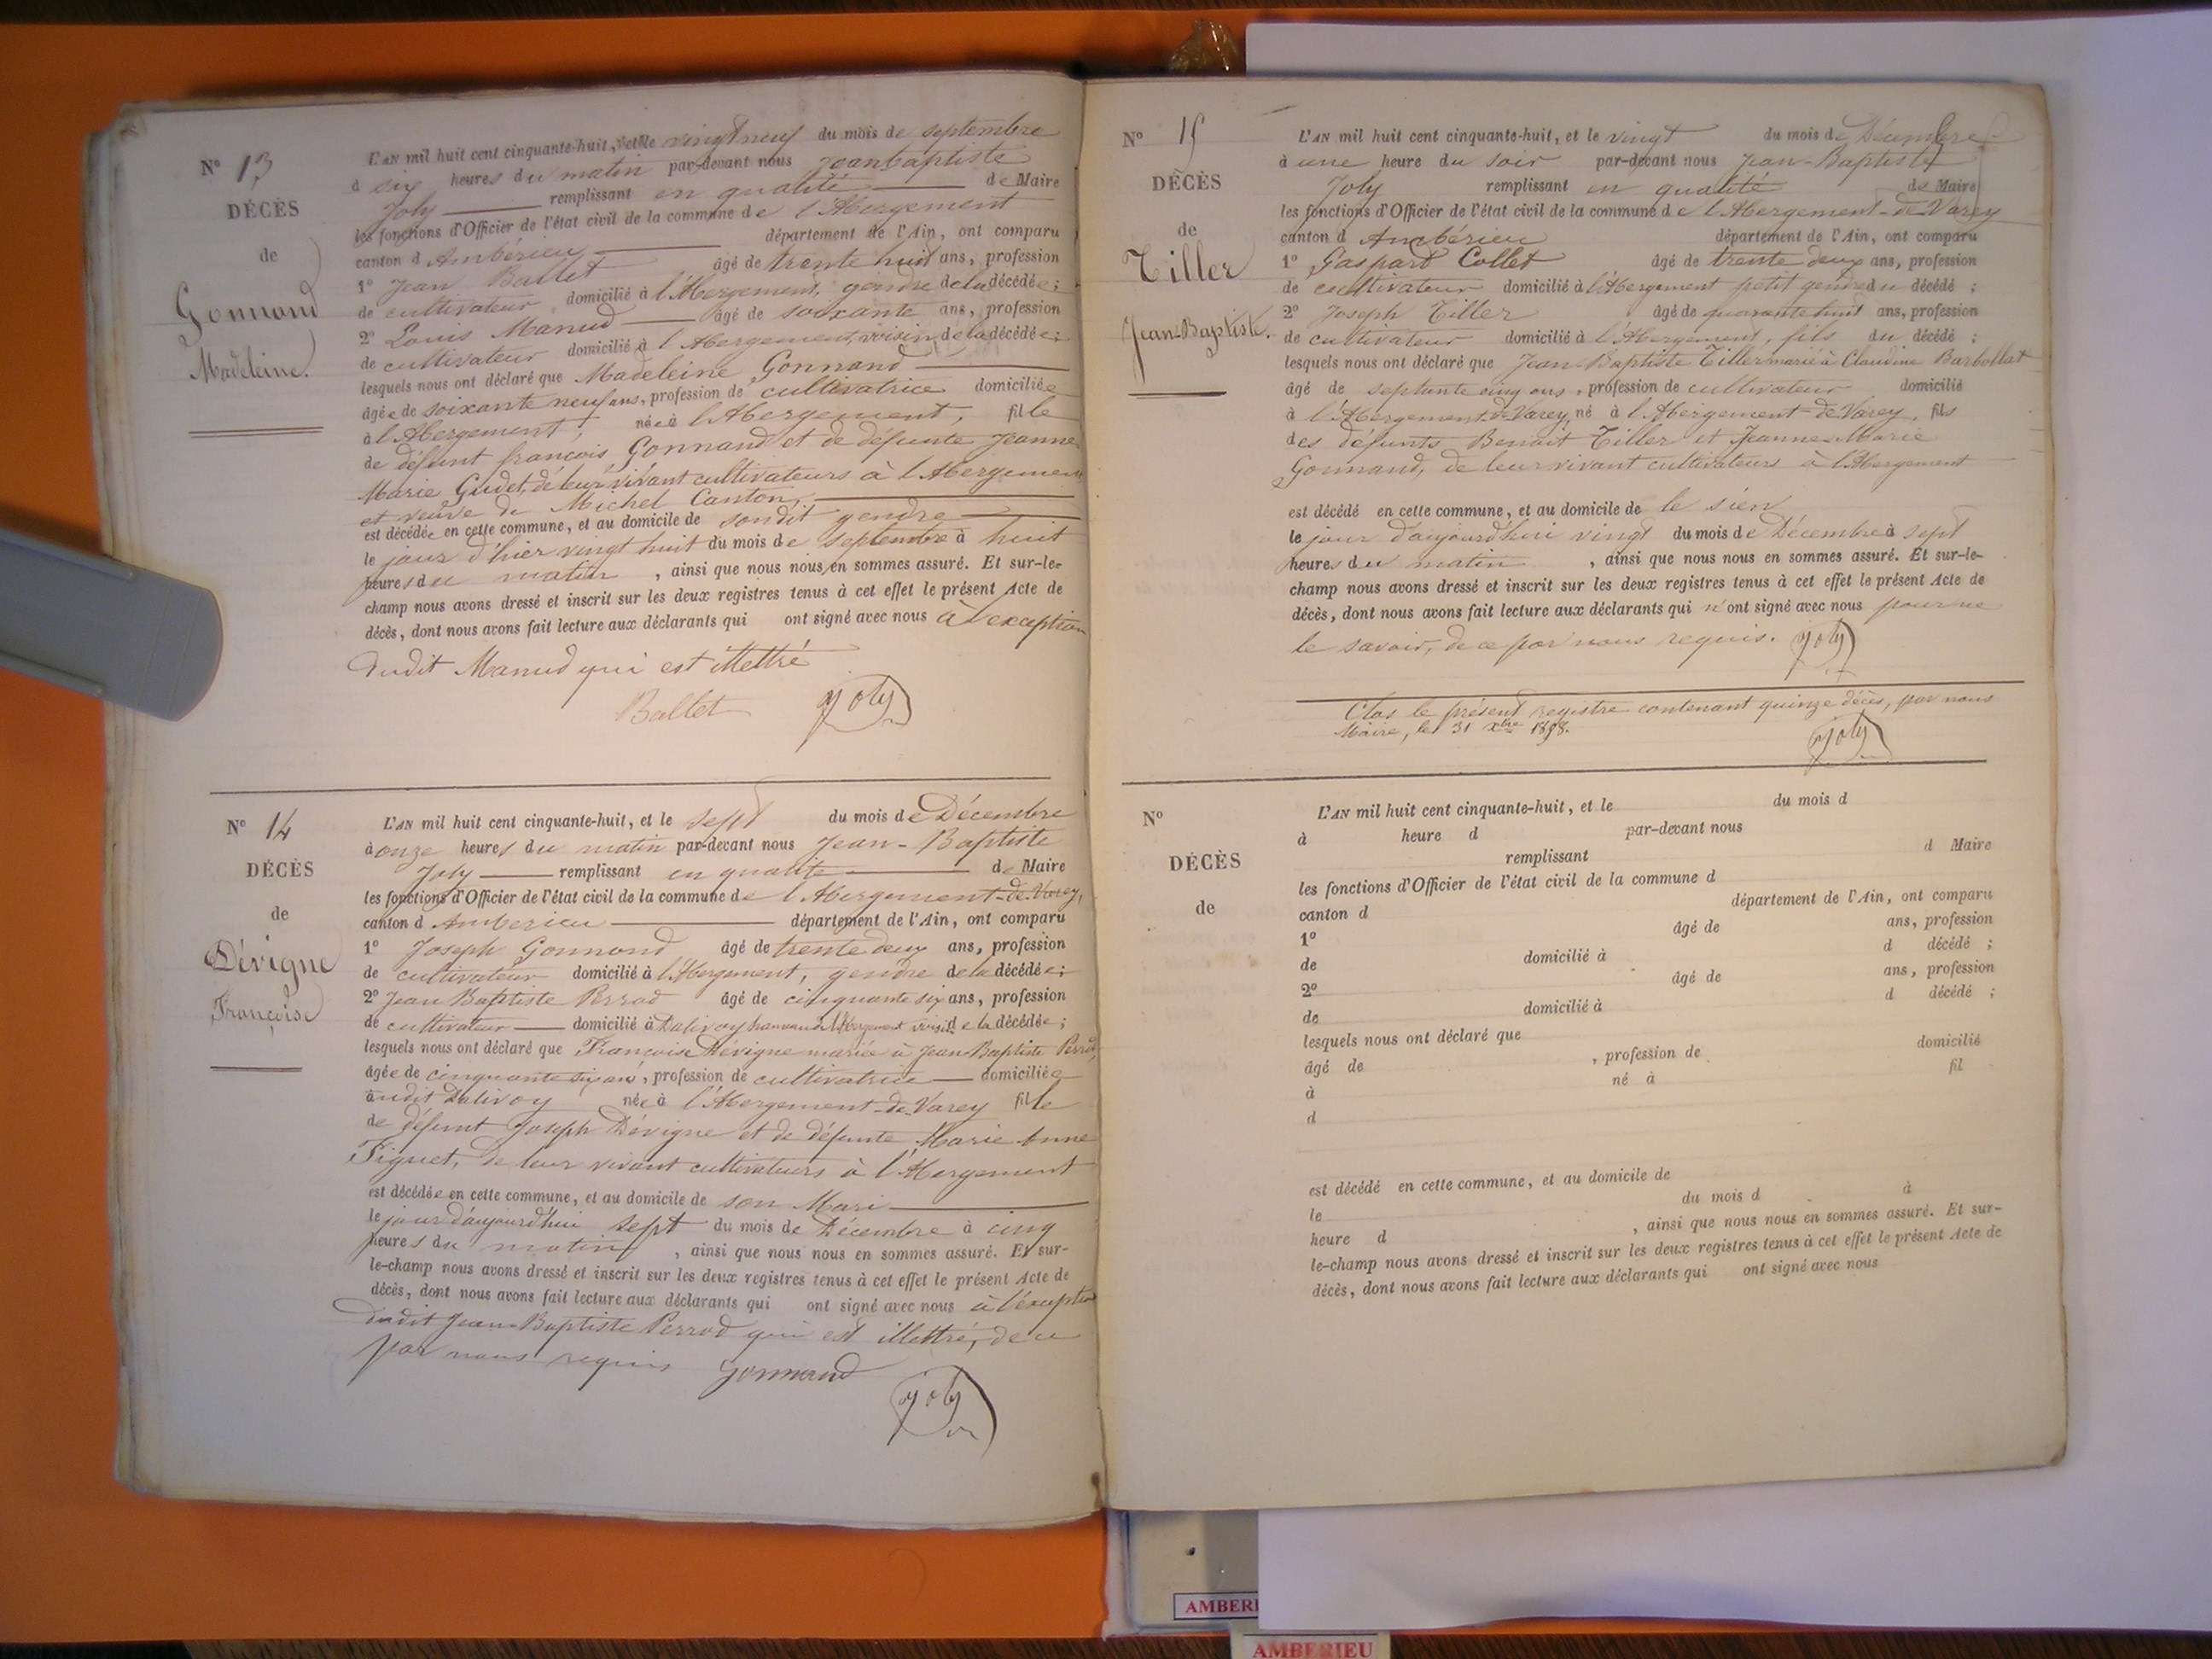 N° 13
DÉCÈS
de
Gonnand
Madeleine.
L'AN mil huit cent cinquante-huit, et le vingt neuf du mois de septembre
à six heures du matin par-devant nous Jean baptiste
Joly remplissant en qualité de Maire
les fonctions d'Officier de l'état civil de la commune de l'Abergement
canton d Ambérieu département de l'Ain, ont comparu
1° Jean Ballet âgé de trente huit ans, profession
de cultivateur domicilié à l'Abergement, gendre de la décédée;
2° Louis Manud âgé de soixante ans, profession
de cultivateur domicilié à l'Abergement, voisin de la décédée;
lesquels nous ont déclaré que Madeleine Gonnand
âgée de soixante neuf ans, profession de cultivatrice domiciliée
à l'Abergement, née à l'Abergement, fille
de défunt françois Gonnand et de défunte Jeanne
Marie Gudet, de leur vivant cultivateurs à l'Abergement
et veuve de Michel Canton,
est décédée en cette commune, et au domicile de son dit gendre
le jour d'hier vingt huit du mois de septembre à huit
heures du matin, ainsi que nous nous en sommes assuré. Et sur-le-
champ nous avons dressé et inscrit sur les deux registres tenus à cet effet le présent Acte de
décès, dont nous avons fait lecture aux déclarants qui ont signé avec nous à l'exception
dudit Manud qui est illettré
Ballet Joly
N° 14
DÉCÈS
de
Dévigne
Françoise
L'AN mil huit cent cinquante-huit, et le sept du mois de Décembre
à onze heures du matin par-devant nous Jean-Baptiste
Joly remplissant en qualité de Maire
les fonctions d'Officier de l'état civil de la commune de l'Abergement-de-Varey,
canton d Ambérieu département de l'Ain, ont comparu
1° Joseph Gonnand âgé de trente deux ans, profession
de cultivateur domicilié à l'Abergement, gendre de la décédée;
2° Jean Baptiste Perrod âgé de cinquante six ans, profession
de cultivateur domicilié à Dalivoy hameau de l'Abergement voisin de la décédée;
lesquels nous ont déclaré que Françoise Dévigne mariée à Jean Baptiste Perrod,
âgée de cinquante six ans, profession de cultivatrice domiciliée
audit Dalivoy née à l'Abergement-de-Varey fille
de défunt Joseph Dévigne et de défunte Marie Anne
Tiguet, de leur vivant cultivateurs à l'Abergement
est décédée en cette commune, et au domicile de son Mari
le jour d'aujourd'hui sept du mois de Décembre à cinq
heures du matin, ainsi que nous nous en sommes assuré. Et sur-
le-champ nous avons dressé et inscrit sur les deux registres tenus à cet effet le présent Acte de
décès, dont nous avons fait lecture aux déclarants qui ont signé avec nous à l'exception
dudit Jean-Baptiste Perrod qui est illettré, de ce
par nous requis Gonnand
Joly
N° 15
DÉCÈS
de
Tiller
Jean-Baptiste.
L'AN mil huit cent cinquante-huit, et le vingt du mois de Décembre
à une heure du soir par-devant nous Jean-Baptiste
Joly remplissant en qualité de Maire
les fonctions d'Officier de l'état civil de la commune de l'Abergement-de-Varey
canton d Ambérieu département de l'Ain, ont comparu
1° Gaspard Collet âgé de trente deux ans, profession
de cultivateur domicilié à l'Abergement petit gendre du décédé;
2° Joseph Tiller âgé de quarante huit ans, profession
de cultivateur domicilié à l'Abergement, fils du décédé;
lesquels nous ont déclaré que Jean-Baptiste Tiller marié à Claudine Barbollat
âgé de septante cinq ans, profession de cultivateur domicilié
à l'Abergement-de-Varey, né à l'Abergement-de-Varey, fils
des défunts Benoit Tiller et Jeanne-Marie
Gonnand, de leur vivant cultivateurs à l'Abergement
est décédé en cette commune, et au domicile de le sien
le jour d'aujourd'hui vingt du mois de Décembre à sept
heures du matin, ainsi que nous nous en sommes assuré. Et sur-le-
champ nous avons dressé et inscrit sur les deux registres tenus à cet effet le présent Acte de
décès, dont nous avons fait lecture aux déclarants qui n'ont signé avec nous pour ne
le savoir, de ce par nous requis. Joly
Clos le présent registre contenant quinze décès, par nous
Maire, le 31 xbre 1858.
Joly
N°
DÉCÈS
de
L'AN mil huit cent cinquante-huit, et le du mois d
à heure d par-devant nous
remplissant d Maire
les fonctions d'Officier de l'état civil de la commune d
canton d département de l'Ain, ont comparu
1° âgé de ans, profession
de domicilié à d décédé;
2° âgé de ans, profession
de domicilié à d décédé;
lesquels nous ont déclaré que
âgé de , profession de domicilié
à né à fil
d
est décédé en cette commune, et au domicile de
le du mois d à
heure d , ainsi que nous nous en sommes assuré. Et sur-
le-champ nous avons dressé et inscrit sur les deux registres tenus à cet effet le présent Acte de
décès, dont nous avons fait lecture aux déclarants qui ont signé avec nous
AMBERI
AMBERIEU